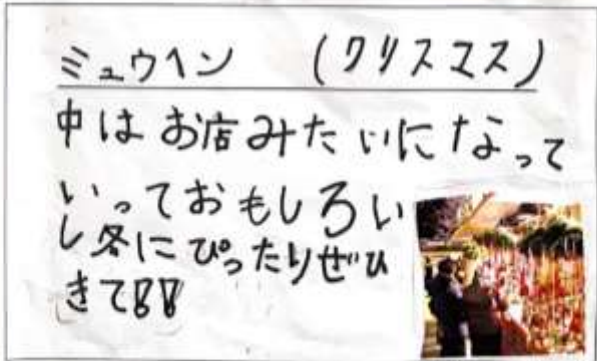 ミュウヘン (クリスマス)
中はお店みたいになって
いっておもしろい
し冬にぴったりぜひ
きて!!